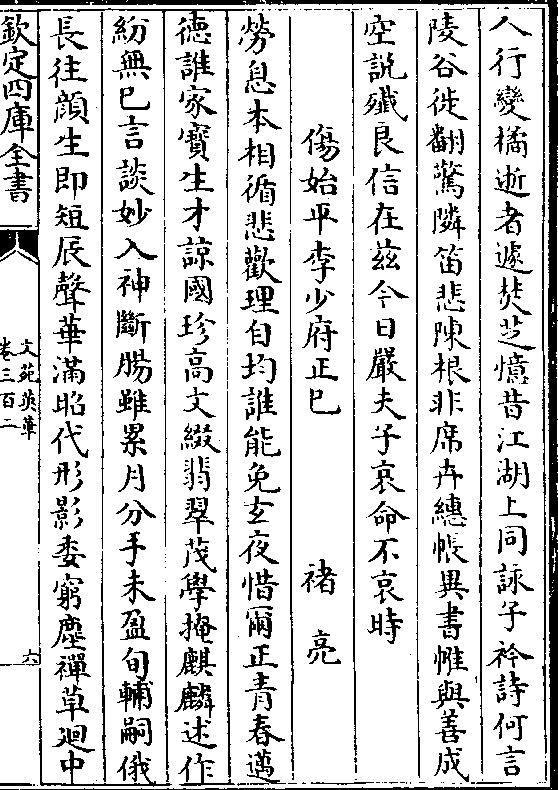 人行變橘逝者遽焚芝憶昔江湖上同詠子衿詩何言
陵谷徙翻驚隣笛悲陳根非席卉繐帳異書帷與善成
空説殲良信在兹今日嚴夫子哀命不哀時
傷始平李少府正已　禇亮
勞息本相循悲歡理自均誰能免玄夜惜爾正青春邁
徳誰家寳生才諒國珍高文綴翡翠茂學掩麒麟述作
紛無已言談妙入神斷腸雖累月分手未盈旬輔嗣俄
長往顔生即短辰聲華滿昭代形影委窮塵禪草廻中
欽定四庫全書
文苑英華
卷三百二
六